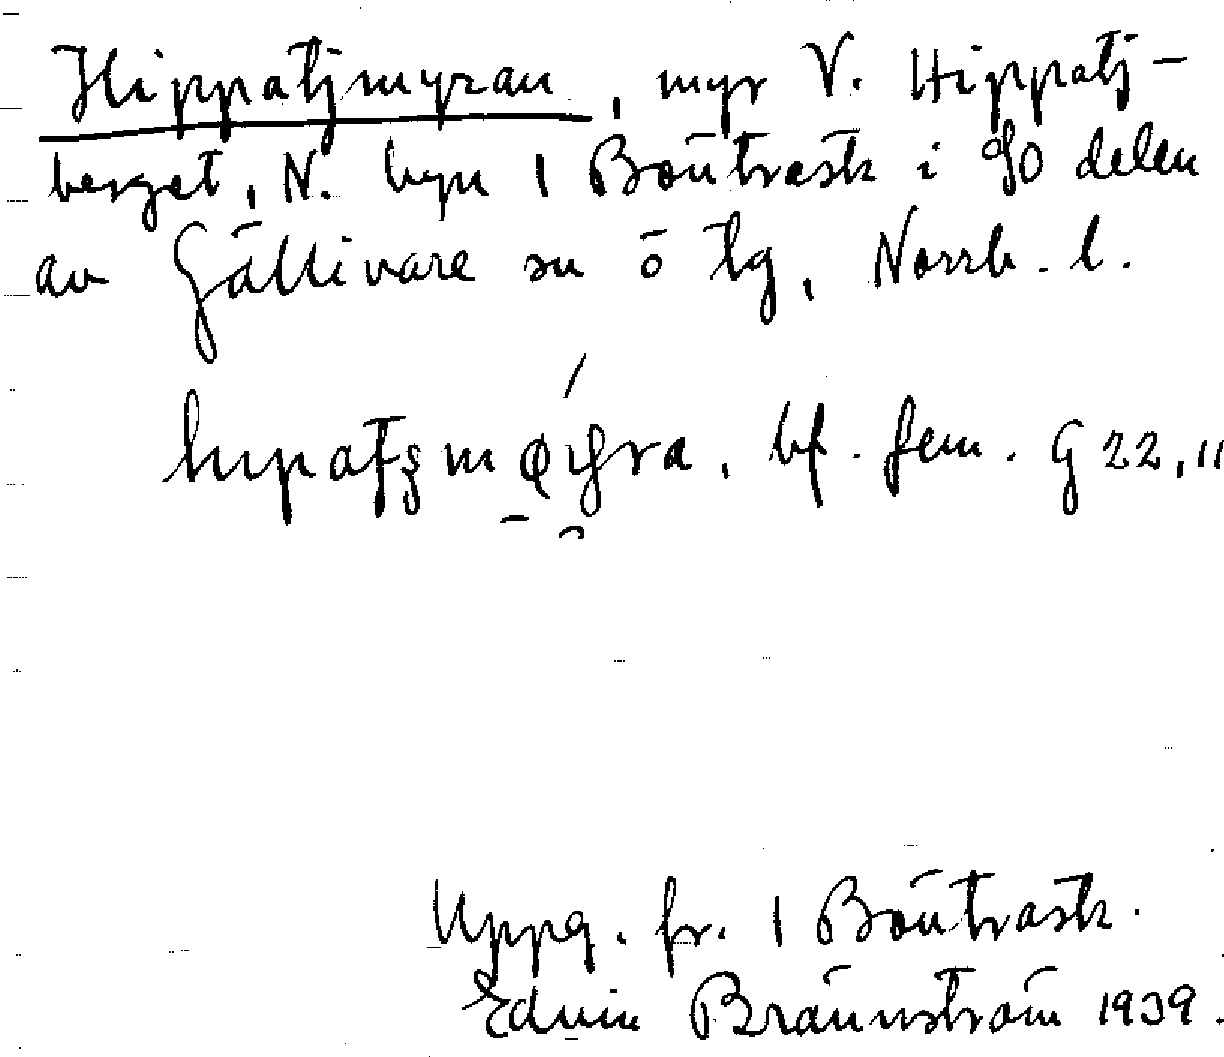 Hippatjmyran, myr V. Hippatj-
berget, N. byn 1 Bönträsk i SO delen
av Gällivare sn ö tg, Norrb. l.
bf. fem. G 22,11
Uppg. fr. 1 Bönträsk.
Edvin Brännström 1939.